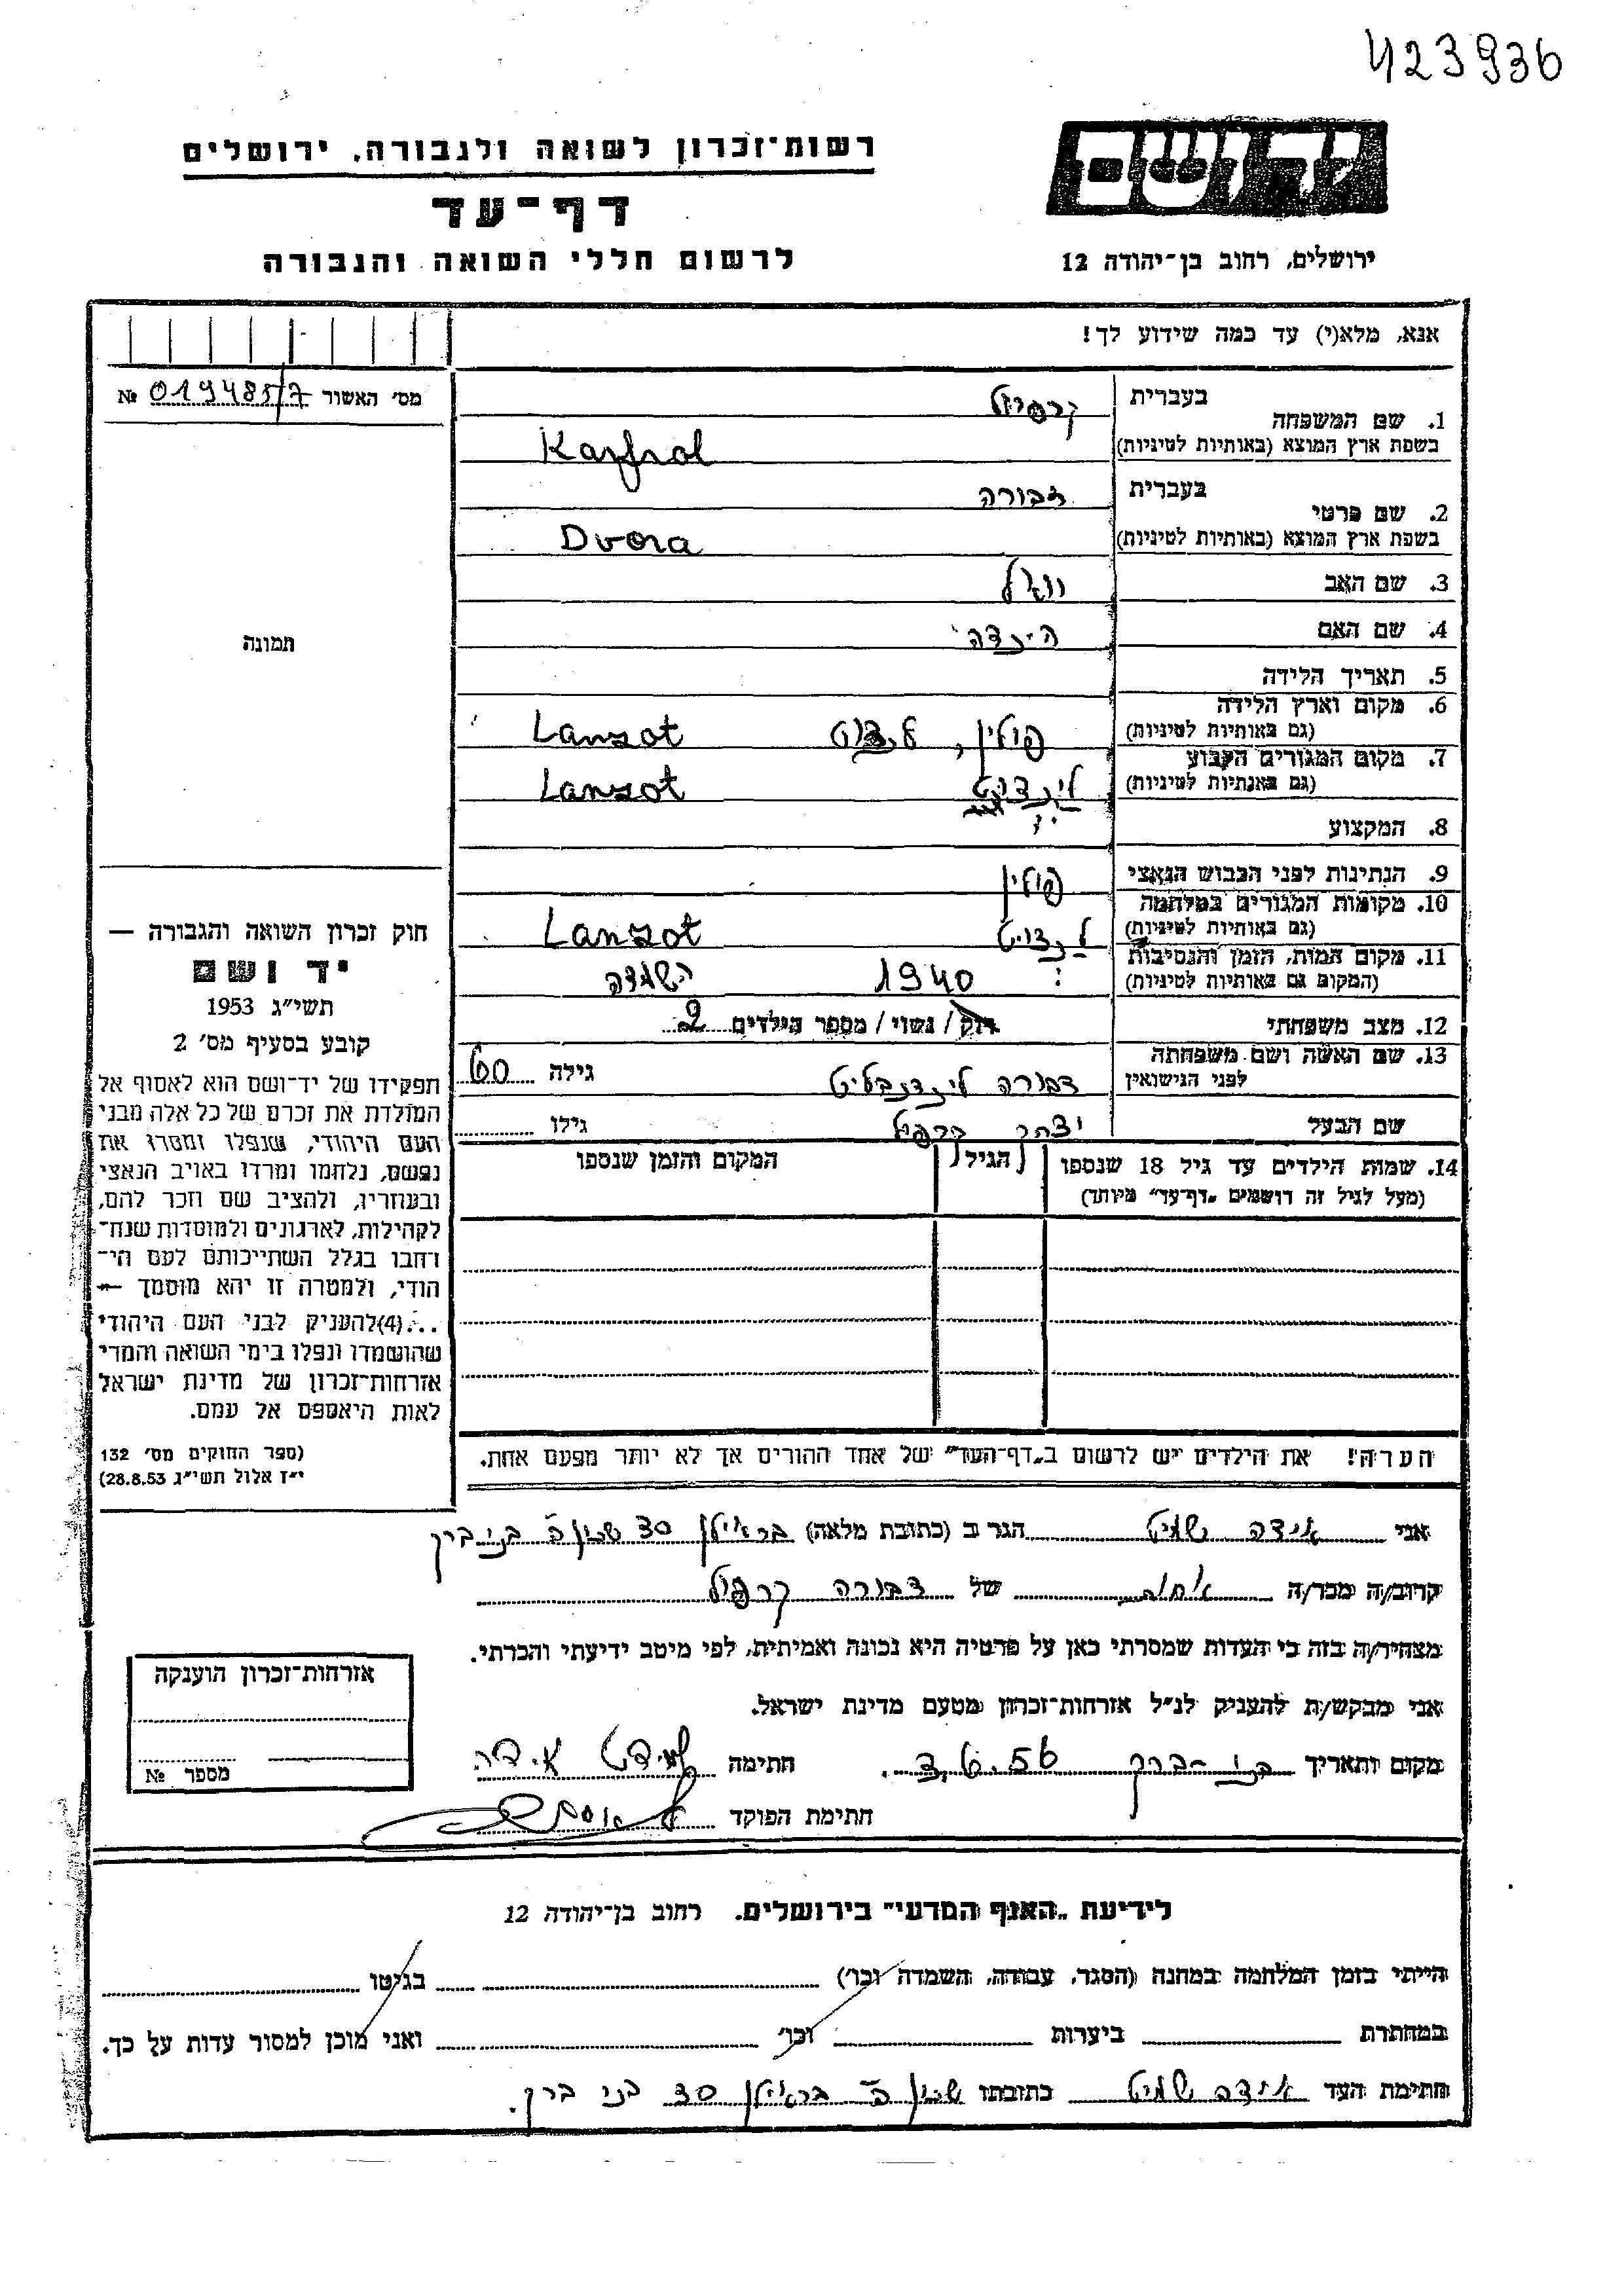 423936
רשות־זכרון לשואה ולגבורה, ירושלים
דף־עד
לרשום חללי השואה והגבורה
יד ושם
ירושלים, רחוב בן־יהודה 12
אנא, מלא(י) עד כמה שידוע לך!
מס׳ האשור 019485/7 №
תמונה
1. שם המשפחה
בעברית קרפול
בשפת ארץ המוצא (באותיות לטיניות) Karfiol
2. שם פרטי
בעברית דבורה
בשפת ארץ המוצא (באותיות לטיניות) Dvora
3. שם האב
4. שם האם הינדה
5. תאריך הלידה
6. מקום וארץ הלידה
(גם באותיות לטיניות) פולין, לנצוט Lanzot
7. מקום המגורים הקבוע
(גם באותיות לטיניות) לינצוט Lanzot
8. המקצוע
9. הנתינות לפני הכבוש הנאצי פולין
10. מקומות המגורים במלחמה
(גם באותיות לטיניות) לנצוט Lanzot
11. מקום המות, הזמן והנסיבות
(המקום גם באותיות לטיניות) : 1940 השמדה
12. מצב משפחתי רוק / נשוי / מספר הילדים 2
13. שם האשה ושם משפחתה
לפני הנישואין דבורה גילה 60
שם הבעל יצחק קרפול גילו
14. שמות הילדים עד גיל 18 שנספו
(מעל לגיל זה רושמים „דף־עד״ מיוחד)
הגיל
המקום והזמן שנספו
הערה! את הילדים יש לרשום ב„דף־העד״ של אחד ההורים אך לא יותר מפעם אחת.
חוק זכרון השואה והגבורה —
יד ושם
תשי״ג 1953
קובע בסעיף מס׳ 2
תפקידו של יד־ושם הוא לאסוף אל
המולדת את זכרם של כל אלה מבני
העם היהודי, שנפלו ומסרו את
נפשם, נלחמו ומרדו באויב הנאצי
ובעוזריו, ולהציב שם וזכר להם,
לקהילות, לארגונים ולמוסדות שנח־
רחבו בגלל השתייכותם לעם הי־
הודי, ולמטרה זו יהא מוסמך —
...(4)להעניק לבני העם היהודי
שהושמדו ונפלו בימי השואה והמרי
אזרחות־זכרון של מדינת ישראל
לאות היאספם אל עמם.
(ספר החוקים מס׳ 132
י״ז אלול תשי״ג 28.8.53)
אני אידה שמיט הגר ב (כתובת מלאה) בר אילן 30 שכון ה׳ בני ברק
קרוב/ה מכר/ה אחות של דבורה קרפול
מצהיר/ה בזה כי העדות שמסרתי כאן על פרטיה היא נכונה ואמיתית, לפי מיטב ידיעתי והכרתי.
אני מבקש/ת להעניק לנ״ל אזרחות־זכרון מטעם מדינת ישראל.
מקום ותאריך בני-ברק 3.6.56 חתימה שמידט אידה
חתימת הפוקד
אזרחות־זכרון הוענקה
מספר №
לידיעת „האגף המדעי״ בירושלים. רחוב בן־יהודה 12
הייתי בזמן המלחמה במחנה (הסגר, עבודה, השמדה וכו׳) בגיטו
במחתרת ביערות וכו׳ ואני מוכן למסור עדות על כך.
חתימת העד אידה שמיט כתובתו שכון ה׳ בר אילן 30 בני ברק.